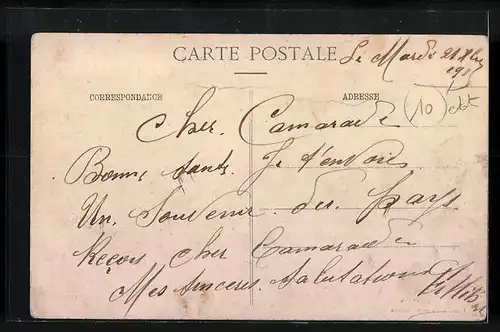 CARTE POSTALE
Le Mardi 21
191
CORRESPONDANCE
ADRESSE
10 ebt
Cher Camarade
Bonne Santé Je t'envois
Un Souvenir des pays
Reçois Cher Camarade
Mes Sinceres Salutations